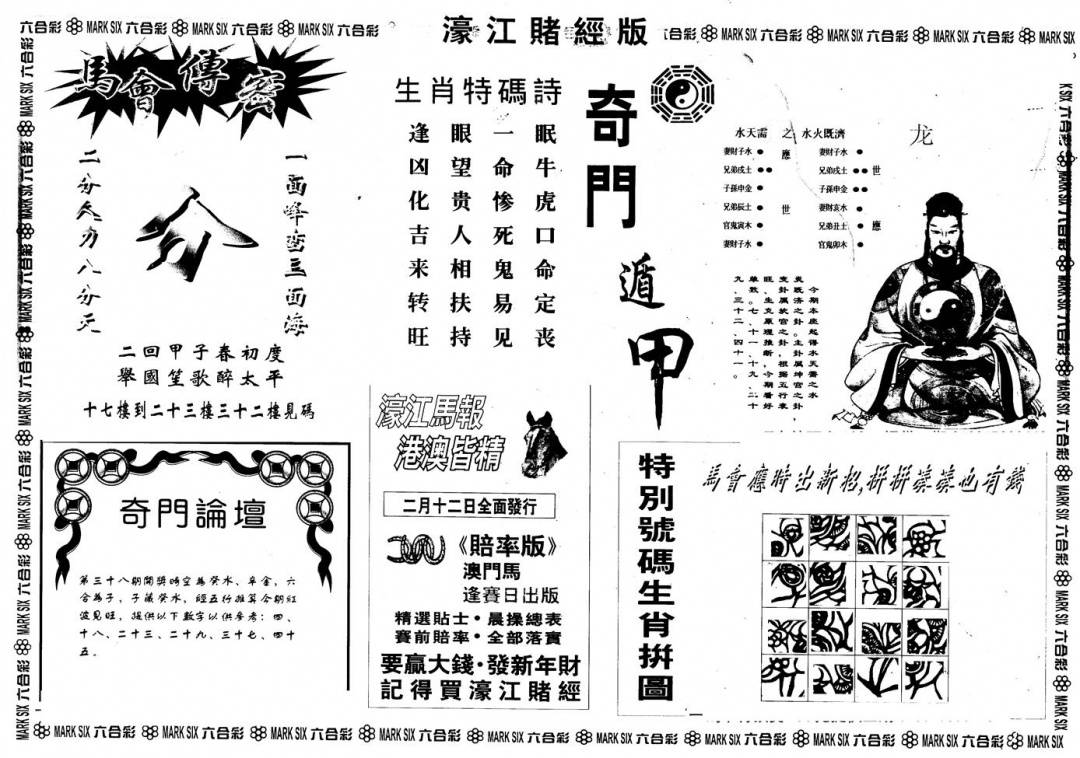 濠江賭經版
六合彩 MARK SIX 六合彩 MARK SIX 六合彩 MARK SIX 六合彩
六合彩 MARK SIX 六合彩 MARK SIX 六合彩 MARK SIX 六合彩 MARK SIX
馬會傳密
一面峰巒三面海
二分人力八分天
二回甲子春初度
舉國笙歌醉太平
十七樓到二十三樓三十二樓見碼
生肖特碼詩
眠牛虎口命定丧
一命惨死鬼易见
眼望贵人相扶持
逢凶化吉来转旺
奇門遁甲
水天需 之 水火既濟
龙
妻財子水 應 妻財子水
兄弟戌土 兄弟戌土 世
子孫申金 子孫申金
兄弟辰土 世 妻財亥水
官鬼寅木 兄弟丑土 應
妻財子水 官鬼卯木
今期本座起得水天需之水
火既濟之卦。主卦属坤宫之卦
变卦属坎宫之卦，根据五行衰
旺、生克原理推断，今期看好
單数、七、十一、十九、二十
九、三十二、四十一。
濠江馬報
港澳皆精
二月十二日全面發行
《賠率版》
澳門馬
逢賽日出版
精選貼士·晨操總表
賽前賠率·全部落實
要贏大錢·發新年財
記得買濠江賭經
奇門論壇
第三十八期開獎時空為癸水、卒金，六
合為子，子藏癸水，經五行推算今期紅
波見旺，提供以下數字以供參考：四、
十八、二十三、二十九、三十七、四十
五。
特別號碼生肖拼圖
馬會應時出新招，拼拼湊湊也有譜
MARK SIX 六合彩 MARK SIX 六合彩 MARK SIX 六合彩 MARK SIX 六合彩 MARK SIX 六合彩 MARK SIX 六合彩 MARK SIX 六合彩 MARK SIX 六合彩 MARK SIX 六合彩 MARK SIX